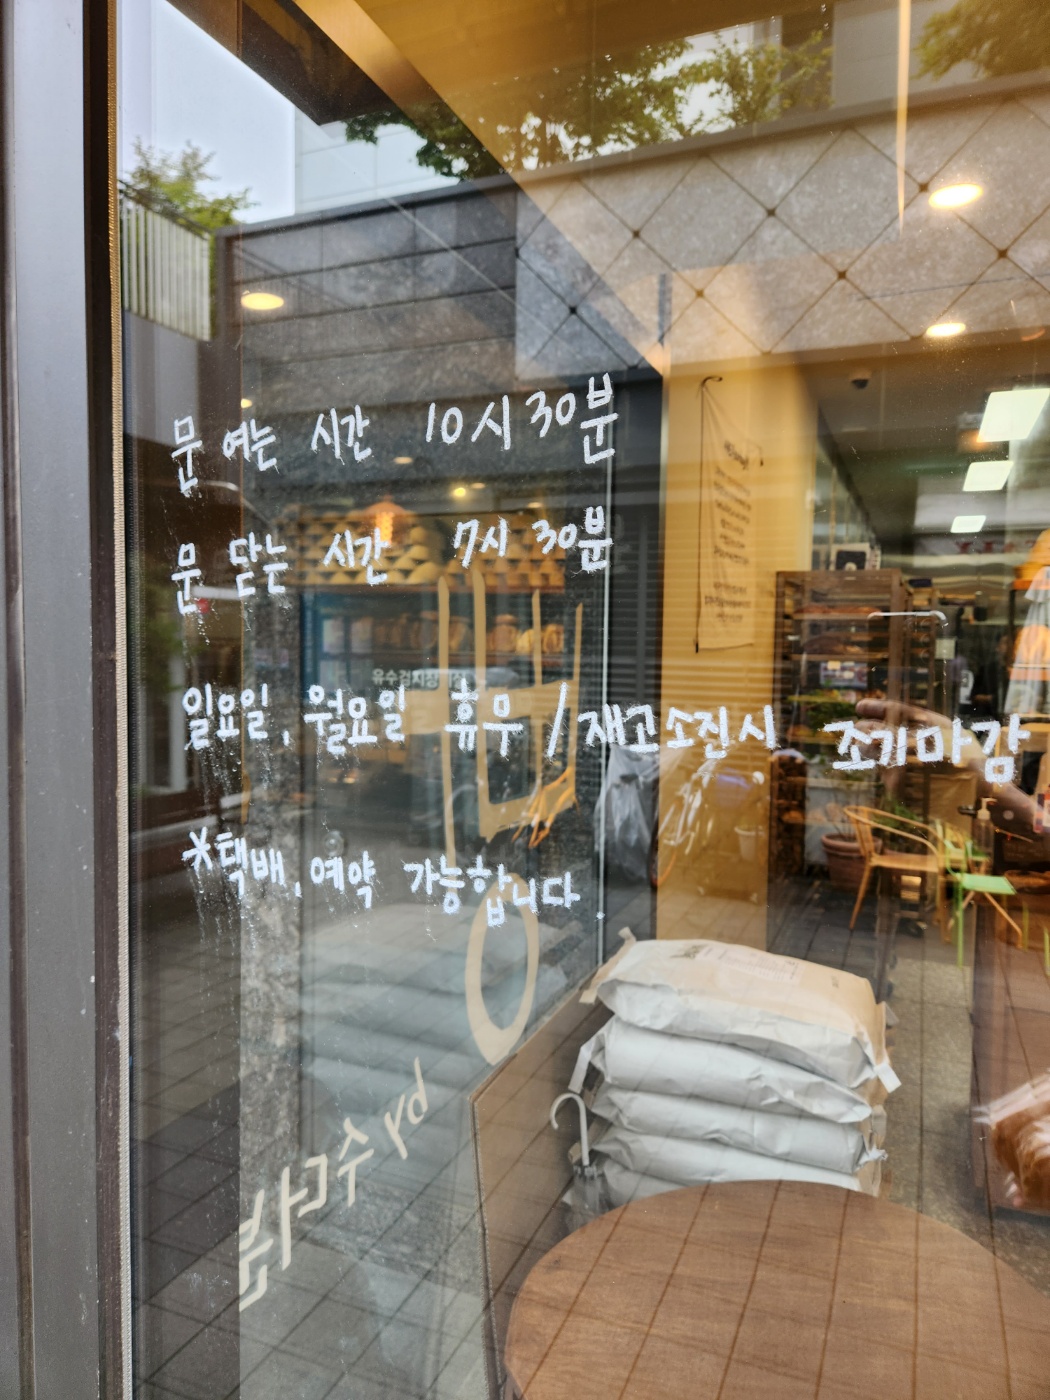 문 여는 시간 10시 30분
문 닫는 시간 7시 30분
일요일, 월요일 휴무 / 재고소진시 조기마감
*택배, 예약 가능합니다.